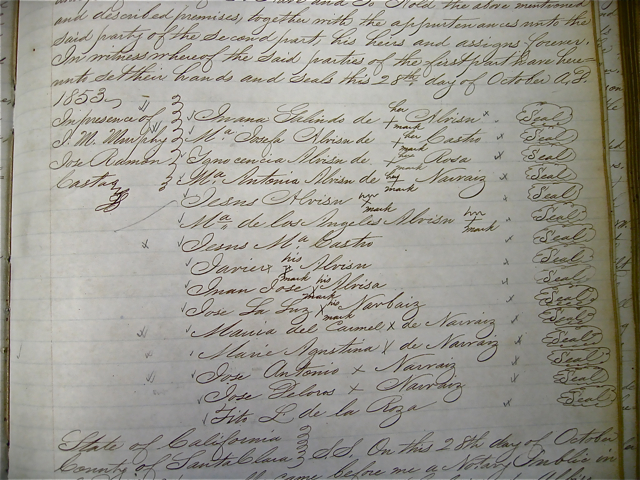 and described premises, together with the appurtenances unto the
said party of the second part, his heirs and assigns forever.
In witness whereof the said parties of the first part have here=
unto set their hands and seals this 28th day of October A.D.
1853
In presence of Juana Galindo de her + mark Alvisn Seal
J. M. Murphy Ma Josefa Alvisn de her + mark Castro Seal
Jose Ramon Ygnocencia Alvisn de her + mark Rosa Seal
Castaz Ma Antonia Alvisn de her + mark Narvaiz Seal
Jesus Alvisn her + mark Seal
Ma de los Angeles Alvisn her + mark Seal
Jesus Ma Castro Seal
Javier his x mark Alvisn Seal
Juan Jose his x mark Alvisa Seal
Jose La Luz his x mark Narbaiz Seal
Maria del Carmel x de Narvaiz Seal
Marie Agustina x de Narvaiz Seal
Jose Antonio x Narvaiz Seal
Jose Deloros x Narvaiz Seal
Tito L de la Roza Seal
State of California
County of Santa Clara S.S. On this 28th day of October
came before me a Notary Public in